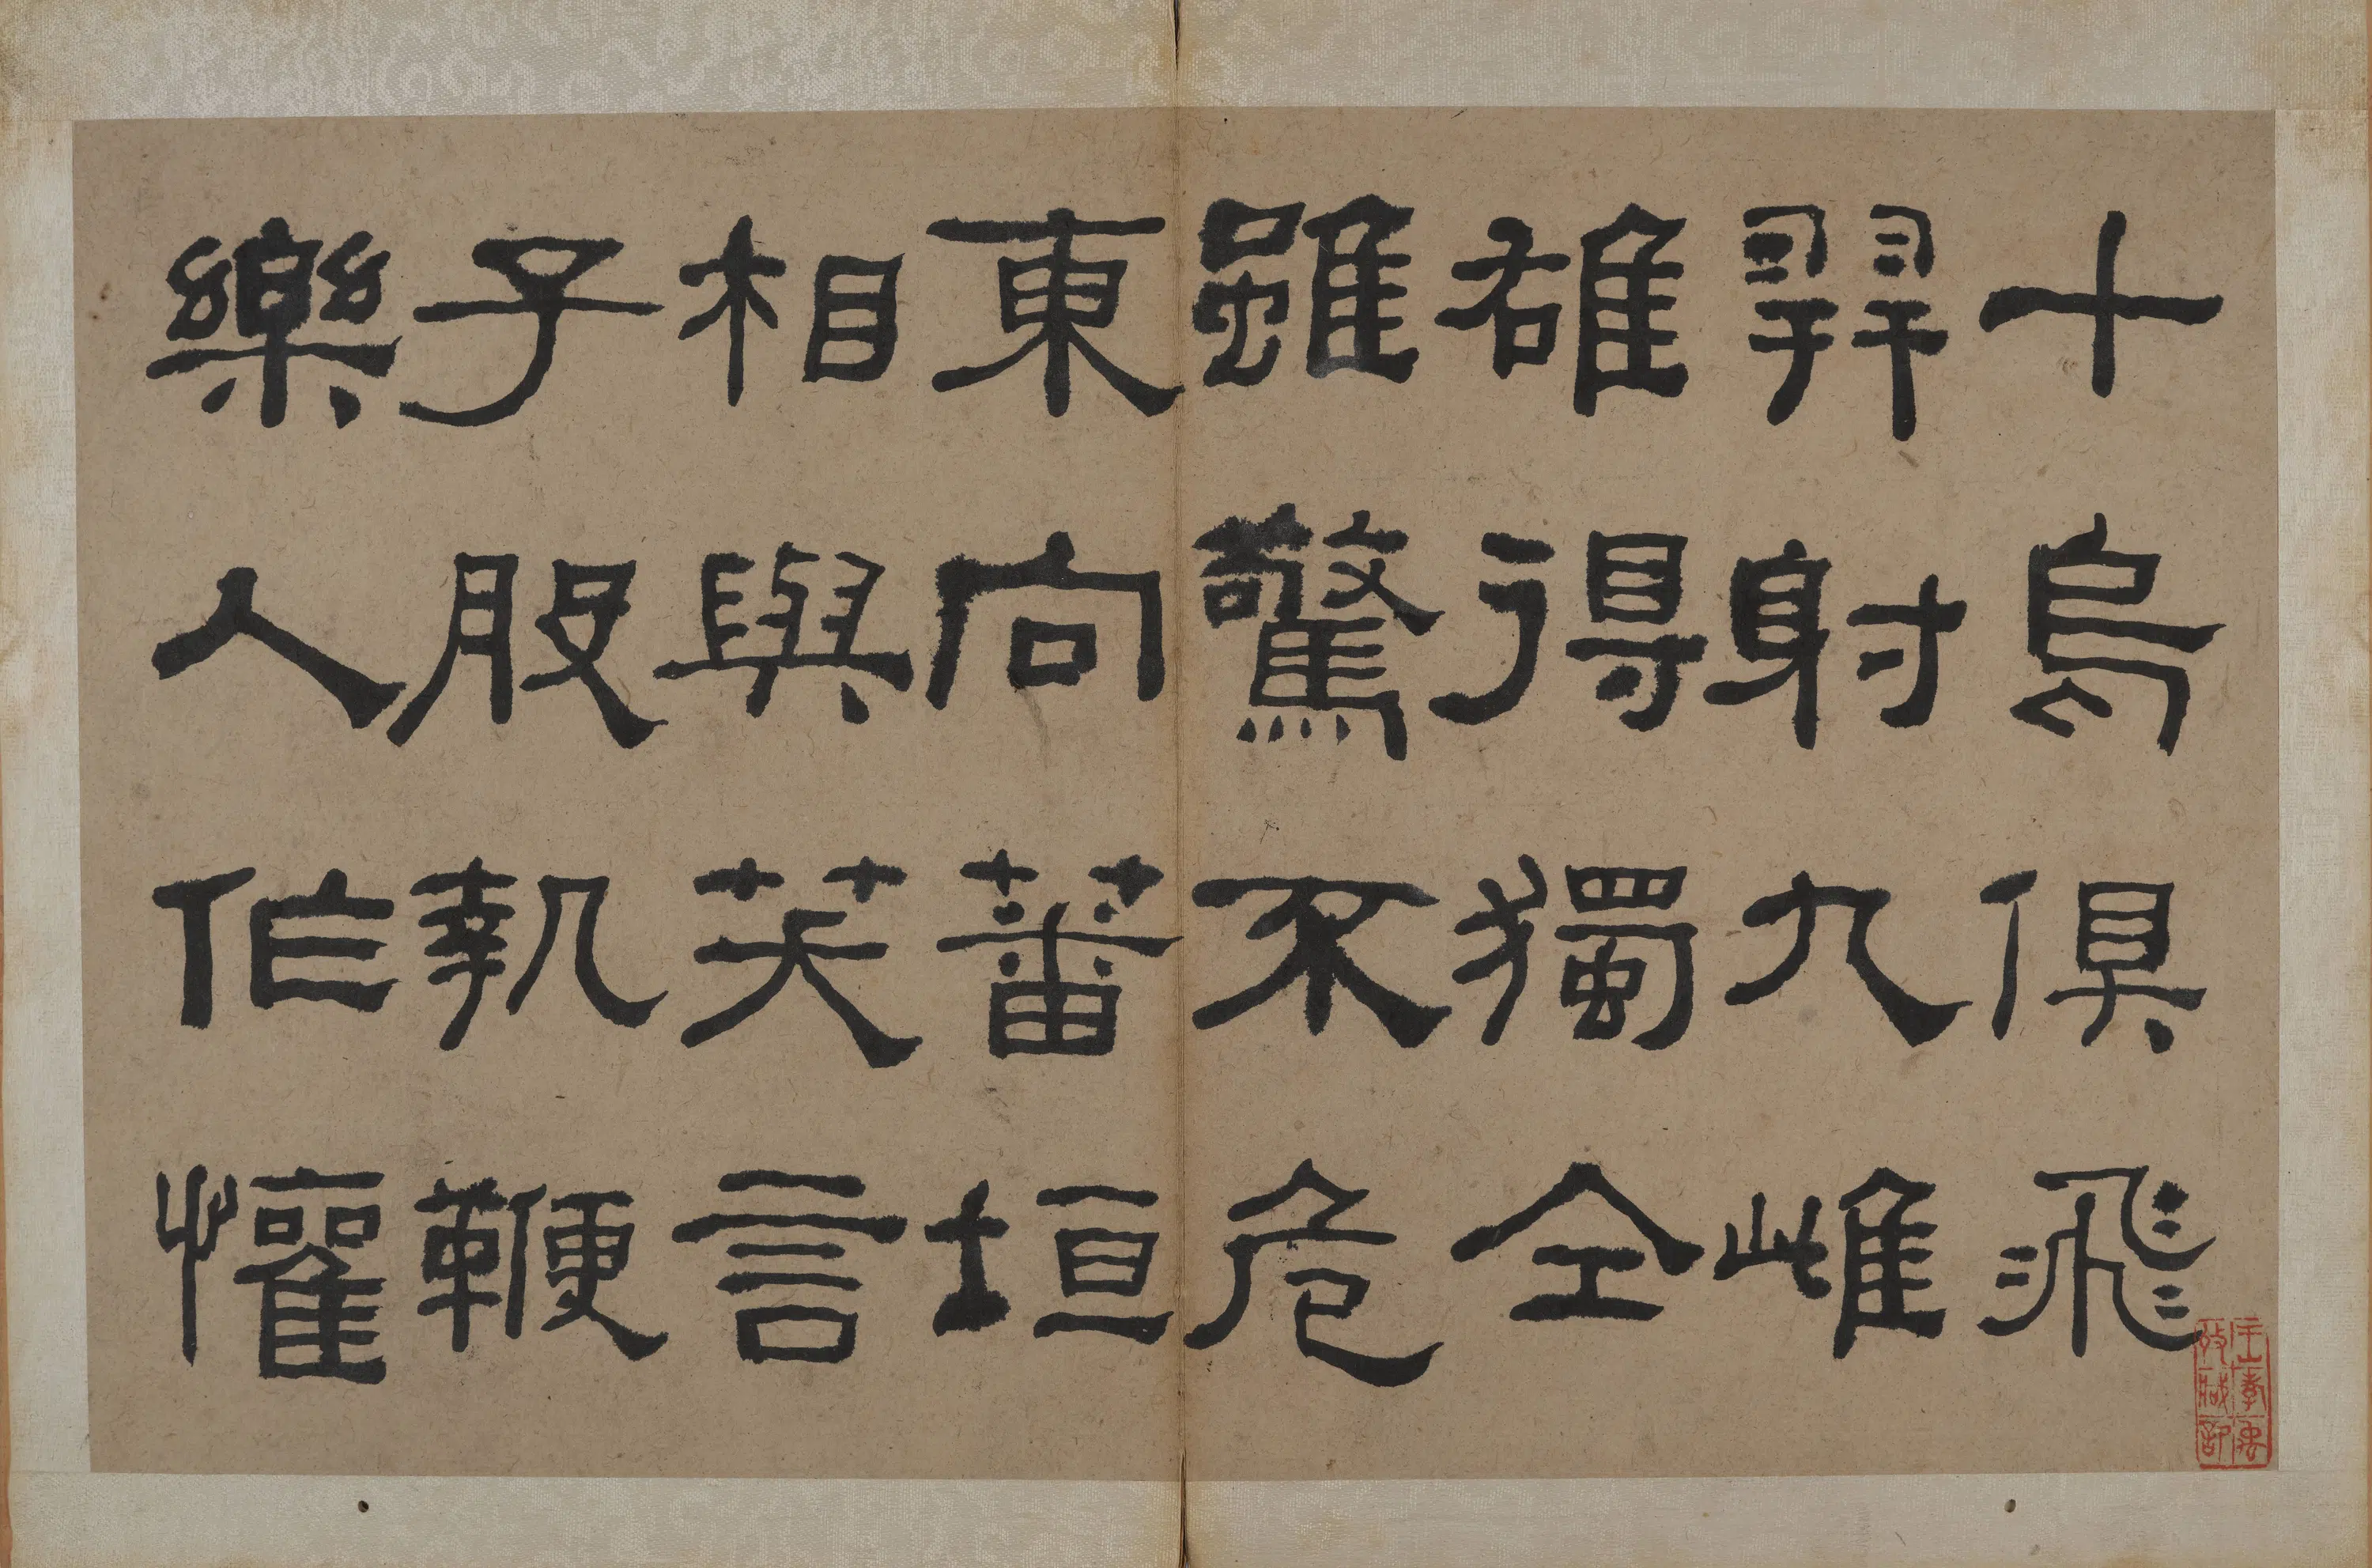 十烏俱飛
羿射九雌
雄得獨全
雖驚不危
東向蕃垣
相與笑言
子般執鞭
樂人作懽